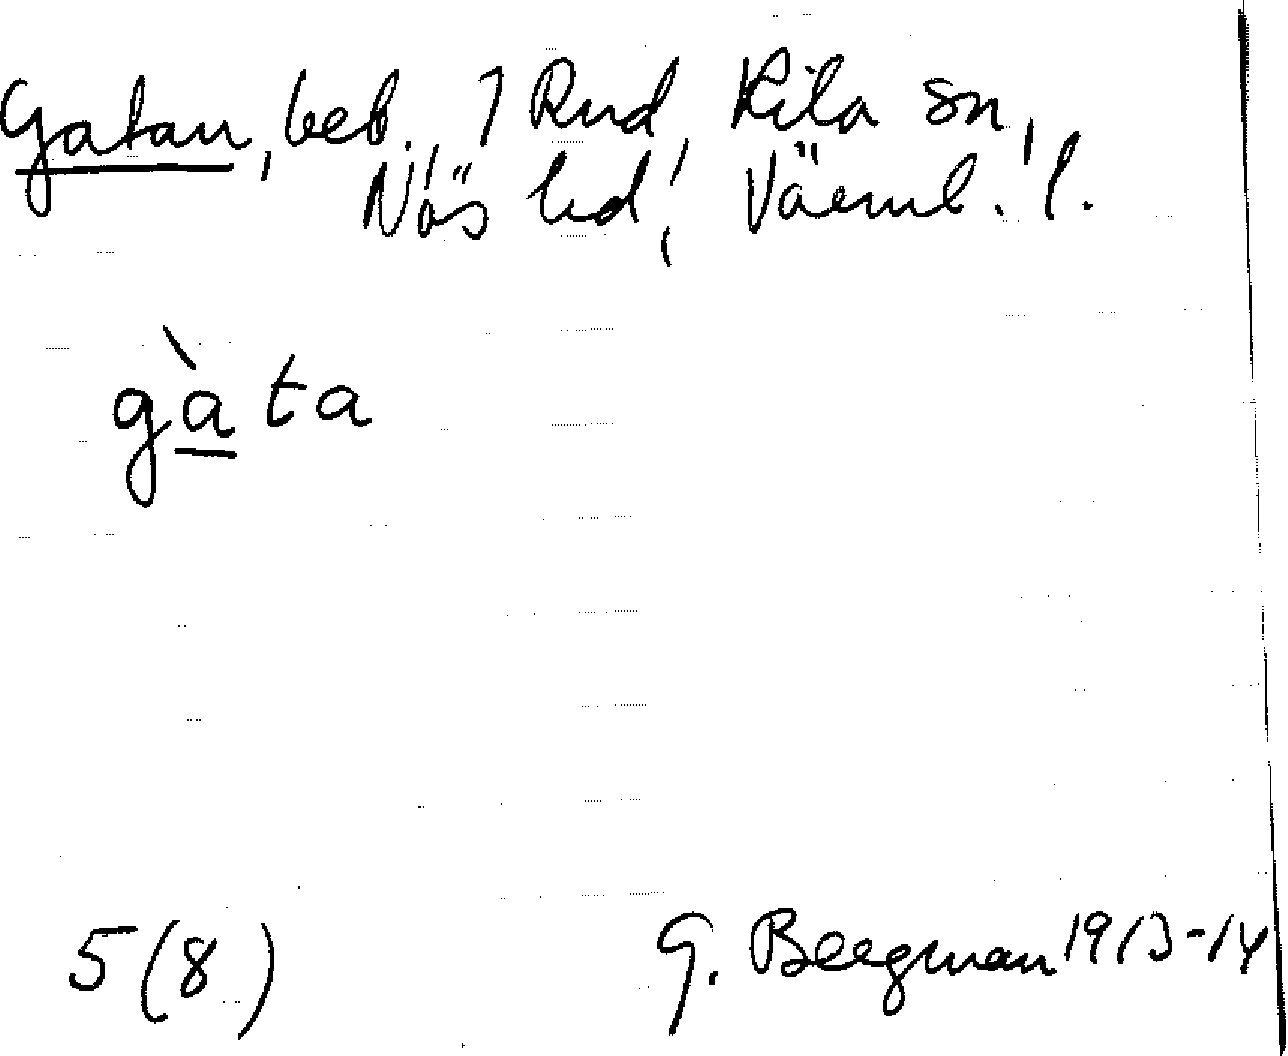 Gatan, beb. 1 Rud, Kila sn,
Näs hd, Värml. l.
gàta
5(8)
G. Bergman 1913-14